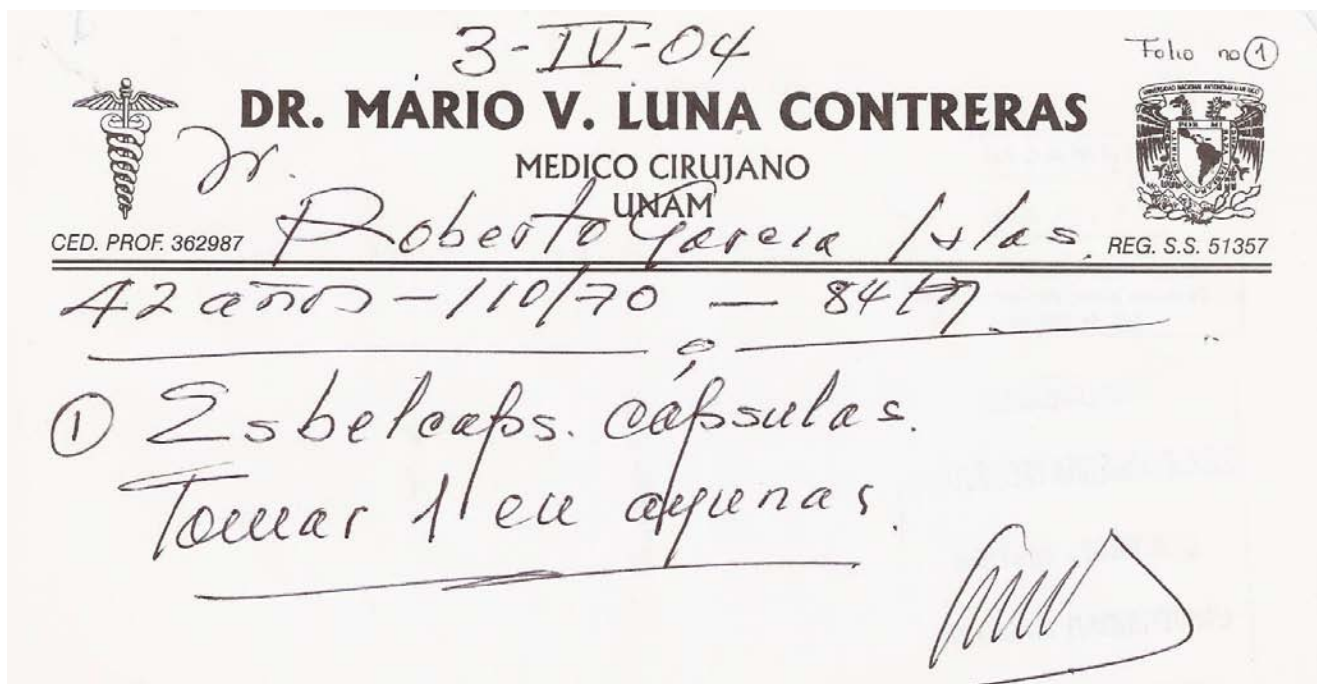 3-IV-04
Folio no 1
DR. MARIO V. LUNA CONTRERAS
MEDICO CIRUJANO
UNAM
CED. PROF. 362987
REG. S.S. 51357
POR MI
Roberto Garcia Islas.
42 años - 110/70 - 84 kg
1 Esbelcaps. cápsulas.
Tomar 1 en ayunas.